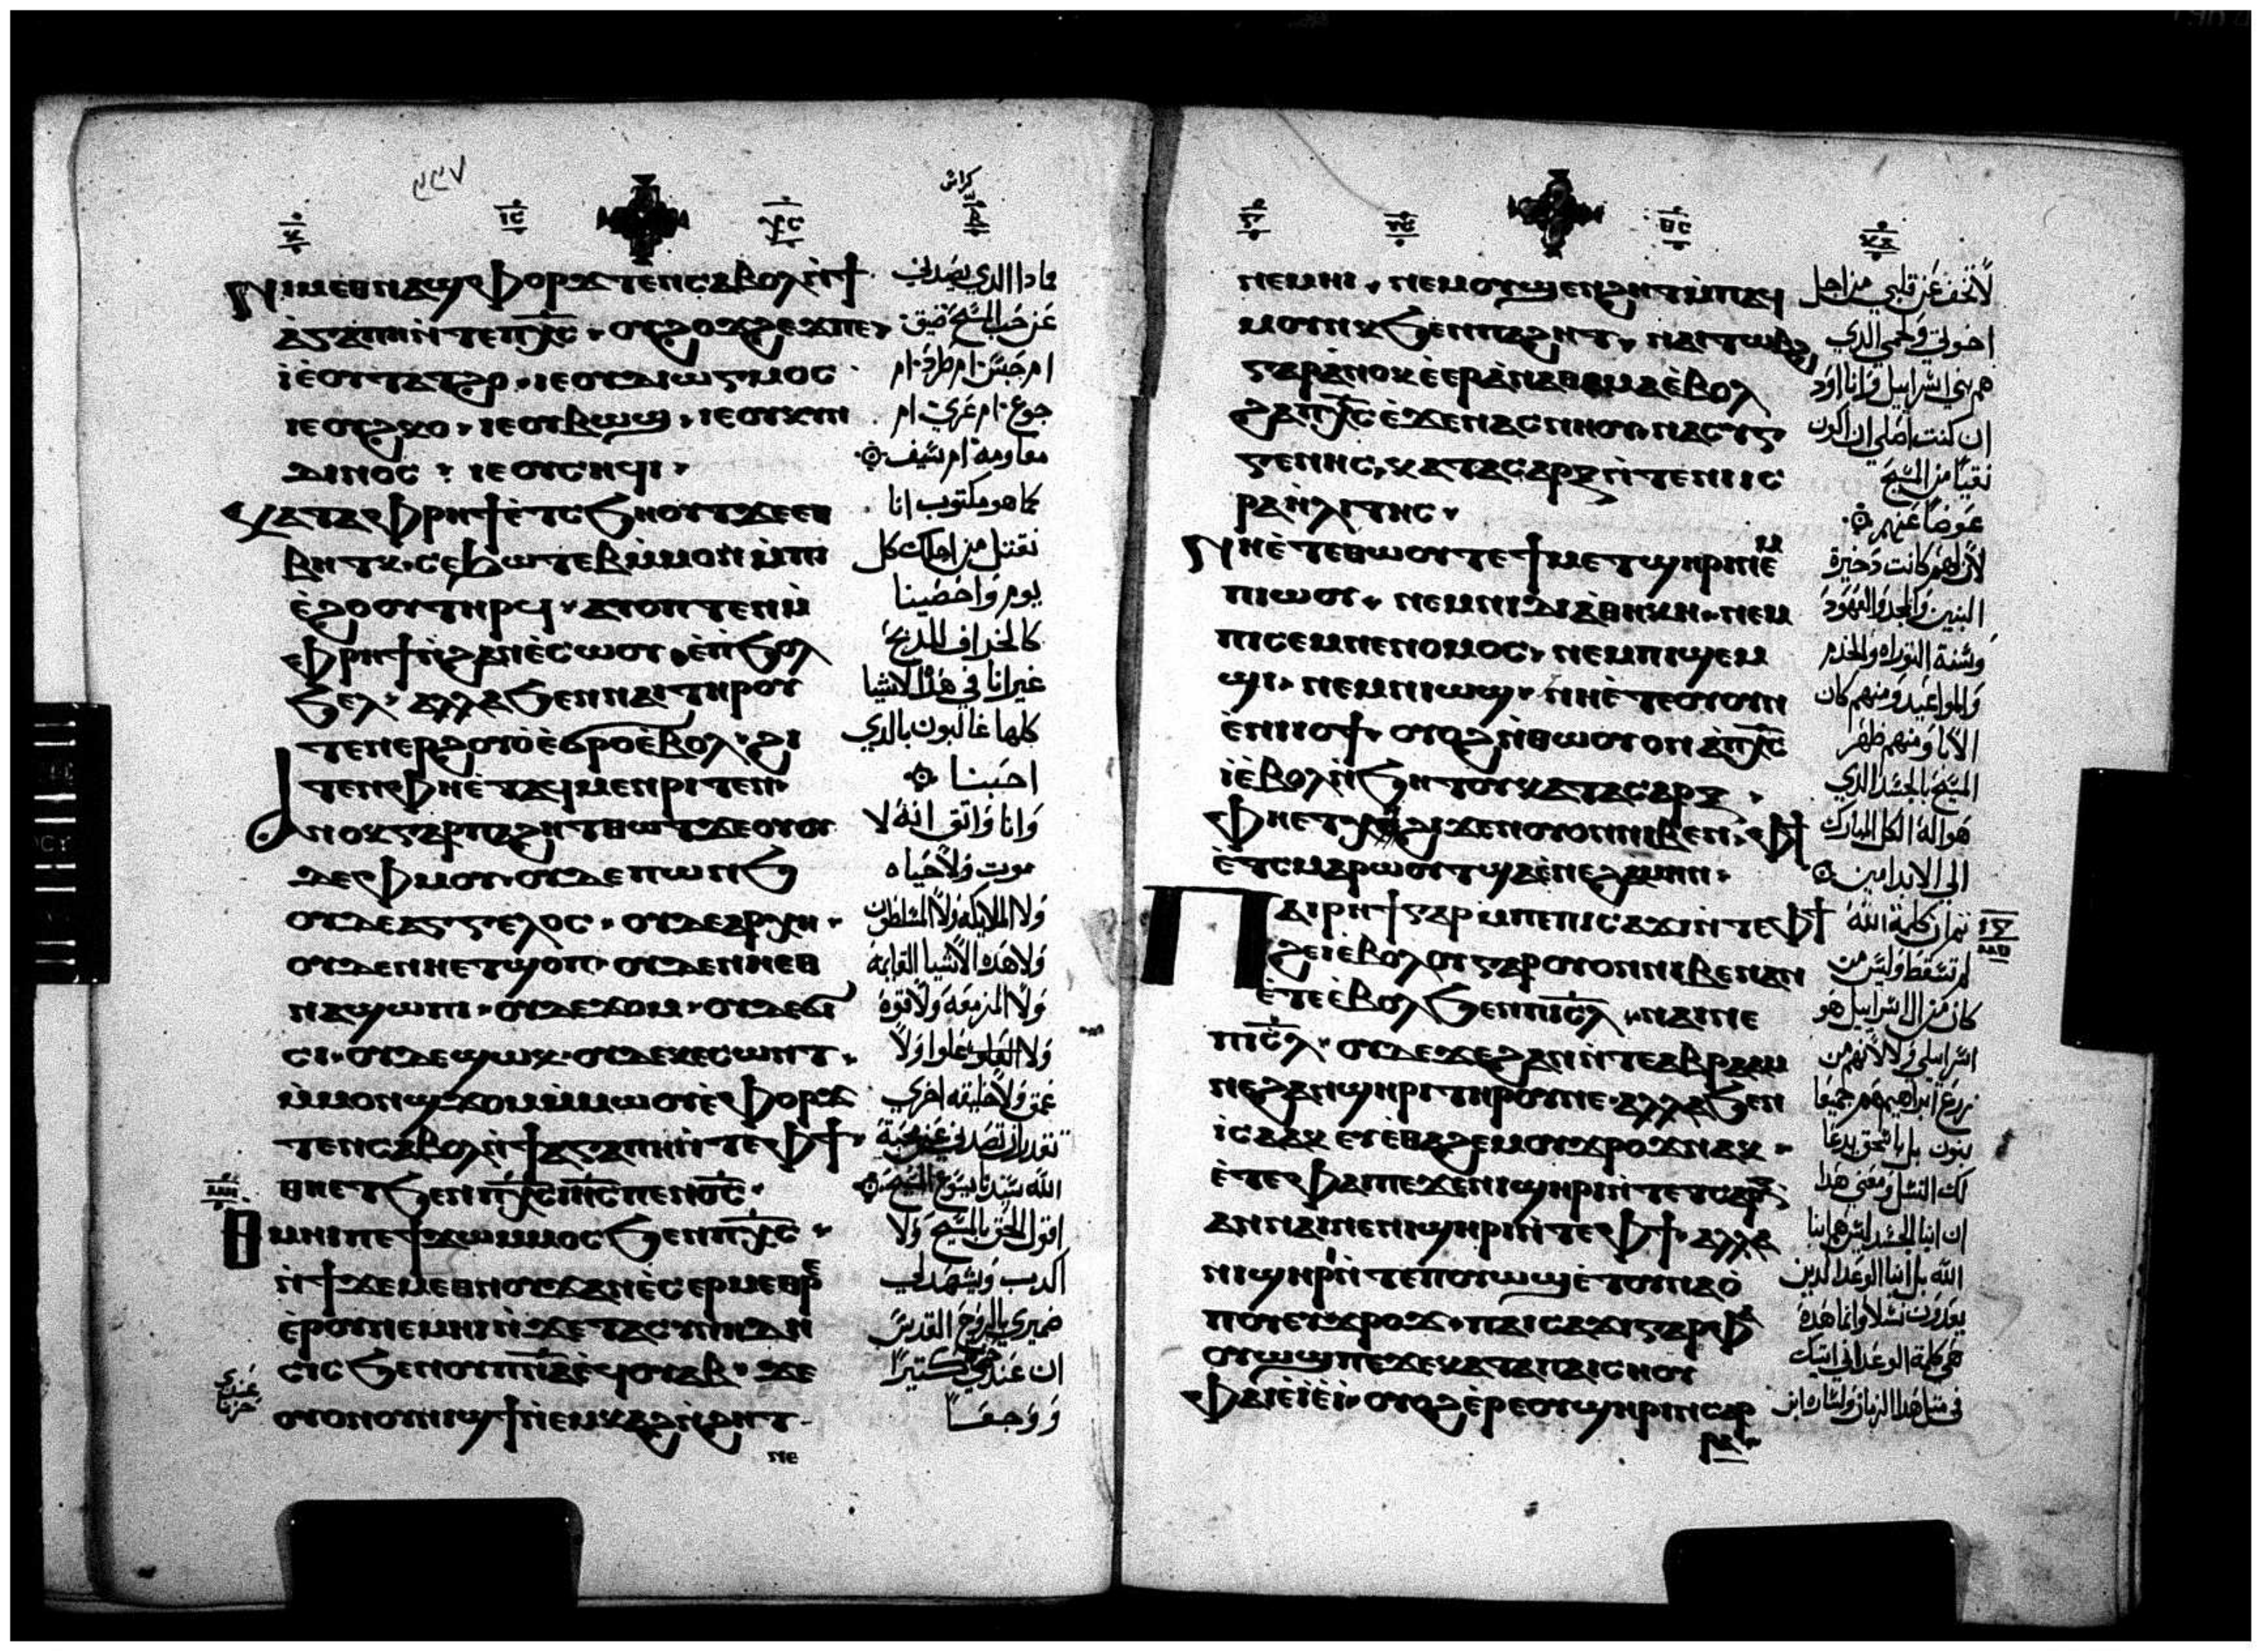 ⲛⲓⲙ ⲉⲑⲛⲁϣⲫⲟⲣϫⲧⲉⲛ ⲥⲁⲃⲟⲗ ⲛϯ
ⲁⲅⲁⲡⲏ ⲛⲧⲉ ⲡⲭⲥ ⲟⲩϩⲟϫϩⲉϫ ⲡⲉ
ⲓⲉ ⲟⲩⲧⲁⲧϩⲟ ⲓⲉ ⲟⲩⲇⲓⲱⲅⲙⲟⲥ
ⲓⲉ ⲟⲩϩⲕⲟ ⲓⲉ ⲟⲩⲃⲱϣ ⲓⲉ ⲟⲩⲕⲩⲛ
ⲇⲓⲛⲟⲥ ⲓⲉ ⲟⲩⲥⲏϥⲓ
ⲕⲁⲧⲁ ⲫⲣⲏϯ ⲉⲧⲥϧⲏⲟⲩⲧ ϫⲉ ⲉⲑ
ⲃⲏⲧⲕ ⲥⲉϧⲱⲧⲉⲃ ⲙⲙⲟⲛ ⲙⲡⲓ
ⲉϩⲟⲟⲩ ⲧⲏⲣϥ ⲁⲩⲟⲡⲧⲉⲛ ⲙ
ⲫⲣⲏϯ ⲛϩⲁⲛⲉⲥⲱⲟⲩ ⲉⲡϧⲟⲗ
ϧⲉⲗ ⲁⲗⲗⲁ ϧⲉⲛ ⲛⲁⲓ ⲧⲏⲣⲟⲩ
ⲧⲉⲛⲉⲣϩⲟⲩⲟ ϭⲣⲟ ⲉⲃⲟⲗ ϩⲓ
ⲧⲉⲛ ⲫⲏ ⲉⲧⲁϥⲙⲉⲛⲣⲓⲧⲉⲛ
ⲁⲛⲟⲕ ⲅⲁⲣ ⲡⲁϩⲏⲧ ⲑⲏⲧ ϫⲉ ⲟⲩ
ⲇⲉ ⲫⲙⲟⲩ ⲟⲩⲇⲉ ⲡⲱⲛϧ
ⲟⲩⲇⲉ ⲁⲅⲅⲉⲗⲟⲥ ⲟⲩⲇⲉ ⲁⲣⲭⲏ
ⲟⲩⲇⲉ ⲛⲏ ⲉⲧϣⲟⲡ ⲟⲩⲇⲉ ⲛⲏ ⲉⲑ
ⲛⲁϣⲱⲡⲓ ⲟⲩⲇⲉ ϫⲟⲙ ⲟⲩⲇⲉ ϭⲓ
ⲥⲓ ⲟⲩⲇⲉ ϣⲱⲕ ⲟⲩⲇⲉ ⲕⲉⲥⲱⲛⲧ
ⲙⲙⲟⲛ ϣϫⲟⲙ ⲙⲙⲱⲟⲩ ⲉⲫⲟⲣϫ
ⲧⲉⲛ ⲥⲁⲃⲟⲗ ⲛϯⲁⲅⲁⲡⲏ ⲛⲧⲉ ⲫϯ
ⲑⲏ ⲉⲧϧⲉⲛ ⲡⲭⲥ ⲓⲏⲥ ⲡⲉⲛⲟⲥ
ⲑⲙⲏⲓ ⲡⲉϯϫⲱ ⲙⲙⲟⲥ ϧⲉⲛ ⲡⲭⲥ
ⲛϯϫⲉⲙⲉⲑⲛⲟⲩϫ ⲁⲛ ⲉⲥⲉⲣⲙⲉⲑⲣⲉ
ⲉⲣⲟⲓ ⲛⲉⲙⲏⲓ ⲛϫⲉ ⲧⲁⲥⲩⲛⲏⲇⲏ
ⲥⲓⲥ ϧⲉⲛ ⲟⲩⲡⲛⲁ ⲉϥⲟⲩⲁⲃ ϫⲉ
ⲟⲩⲟⲛ ⲟⲩⲛⲓϣϯ ⲛⲉⲙⲕⲁϩ ⲛϩⲏⲧ
ⲛⲉ
فما دا الدي يصدني
عن حب المسيح ضيق
ام حبس ام طرد ام
جوع ام عري ام
معاومه ام سيف
كما هو مكتوب انا
نقتل من اجلك كل
يوم واحصينا
كالخراف للدبح
غير انا في هذه الاشيا
كلها غالبون بالدي
احبنا
وانا واتق انه لا
موت ولا حياه
ولا الملايكه ولا السلطون
ولا هده الاشيا القايمه
ولا المزمعه ولا قوه
ولا علوا ولا
عمق ولا خليقه اخري
تقدر ان تصدني عن محبة
الله سيدنا يسوع المسيح
اقول الحق بالمسيح ولا
اكدب ويشهد لي
ضميري بالروح القدس
ان عندي حزن كتيرا
ووجعا
ⲛⲉⲙⲏⲓ ⲛⲉⲙ ⲟⲩϣⲉⲛϩⲏⲧ ⲙⲡⲁϥ
ⲙⲟⲩⲛⲕ ϧⲉⲛ ⲡⲁϩⲏⲧ ⲛⲁⲓⲧⲱⲃϩ
ⲅⲁⲣ ⲁⲛⲟⲕ ⲉⲉⲣⲁⲛⲁⲑⲉⲙⲁ ⲉⲃⲟⲗ
ϩⲁ ⲡⲭⲥ ⲉϫⲉⲛ ⲛⲁⲥⲛⲏⲟⲩ ⲛⲁⲥⲩⲅ
ⲅⲉⲛⲏⲥ ⲕⲁⲧⲁ ⲥⲁⲣⲝ ⲛⲧⲉ ⲛⲓⲓⲥ
ⲣⲁⲏⲗⲓⲧⲏⲥ
ⲛⲏ ⲉⲧⲉ ⲑⲱⲟⲩ ⲧⲉ ϯⲙⲉⲧϣⲏⲣⲓ ⲛⲉⲙ
ⲡⲓⲱⲟⲩ ⲛⲉⲙ ⲛⲓⲇⲓⲁⲑⲏⲕⲏ ⲛⲉⲙ
ⲡⲓⲥⲉⲙⲛⲉⲛⲟⲙⲟⲥ ⲛⲉⲙ ⲡⲓϣⲉⲙ
ϣⲓ ⲛⲉⲙ ⲛⲓⲱϣ ⲛⲏ ⲉⲧⲉ ⲟⲩⲟⲩⲛ
ⲉⲛⲓⲓⲟϯ ⲟⲩⲟϩ ⲛⲑⲱⲟⲩ ⲟⲛ ⲁⲡⲭⲥ
ⲓ ⲉⲃⲟⲗ ⲛϧⲏⲧⲟⲩ ⲕⲁⲧⲁ ⲥⲁⲣⲝ
ⲫⲏ ⲉⲧⲭⲏ ϩⲓϫⲉⲛ ⲟⲩⲟⲛ ⲛⲓⲃⲉⲛ ⲫϯ
ⲉⲧⲥⲙⲁⲣⲱⲟⲩⲧ ϣⲁ ⲉⲛⲉϩ ⲁⲙⲏⲛ
ⲡⲁⲓⲣⲏϯ ⲅⲁⲣ ⲙⲡⲉ ⲡⲓⲥⲁϫⲓ ⲛⲧⲉ ⲫϯ
ϩⲉⲓ ⲉⲃⲟⲗ ⲟⲩ ⲅⲁⲣ ⲟⲩⲟⲛ ⲛⲓⲃⲉⲛ ⲁⲛ
ⲉⲧⲉ ⲉⲃⲟⲗ ϧⲉⲛ ⲡⲓⲥⲗ ⲛⲁⲓ ⲛⲉ
ⲡⲓⲥⲗ ⲟⲩⲇⲉ ϫⲉ ϩⲁⲛ ⲛⲧⲉ ⲁⲃⲣⲁⲁⲙ
ⲛⲉ ϩⲁⲛϣⲏⲣⲓ ⲧⲏⲣⲟⲩ ⲛⲉ ⲁⲗⲗⲁ ϧⲉⲛ
ⲓⲥⲁⲁⲕ ⲉⲩⲉⲑⲁϩⲉⲙ ⲟⲩϫⲣⲟϫ ⲛⲁⲕ
ⲉⲧⲉ ⲫⲁⲓ ⲡⲉ ϫⲉ ⲛⲓϣⲏⲣⲓ ⲛⲧⲉ ⲧⲥⲁⲣⲝ
ⲁⲛ ⲛⲁⲓ ⲛⲉ ⲛⲓϣⲏⲣⲓ ⲛⲧⲉ ⲫϯ ⲁⲗⲗⲁ
ⲛⲓϣⲏⲣⲓ ⲛⲧⲉ ⲡⲟⲩⲱϣ ⲉⲧⲟⲩⲛⲁⲟ
ⲡⲟⲩ ⲉⲩϫⲣⲟϫ ⲡⲁⲓⲥⲁϫⲓ ⲅⲁⲣ ⲫⲁ
ⲟⲩⲱϣ ⲡⲉ ϫⲉ ⲕⲁⲧⲁ ⲡⲁⲓⲥⲏⲟⲩ
ⲫⲁⲓ ⲉⲓⲉⲓ ⲟⲩⲟϩ ⲉⲣⲉ ⲟⲩϣⲏⲣⲓ ⲛⲥⲁⲣ
ⲣⲁ
لا تخف عن قلبي من اجل
اخوتي ولحمي الدي
هم بني اسراييل وانا اود
ان كنت اصلي ان اكون
نقيا من المسيح
عوضا عنهم
لان لهم كانت دخيرة
البنين والمجد والعهود
وسنة التوراه والخدم
والمواعيد ومنهم كان
الابا ومنهم ظهر
المسيح بالجسد الدي
هو اله الكل المبارك
الي الابد امين
ثم ان كلمة الله
لم تسقط وليس من
كان من ال اسراييل هو
اسراييلي ولا لانهم من
زرع ابراهيم هم جميعا
بنون بل باسحق يدعا
لك النسل ومعني هدا
ان ابنا الجسد ليس هم ابنا
الله بل ابنا الوعد الدين
يعدون نسلا وانما هده
هي كلمة الوعد اني اتيك
في متل هدا الزمان ولساره ابن